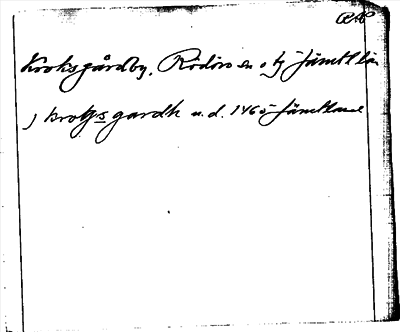 Kroksgårdby, Rödöns sn o tg Jämtl län
j krokxsgardh u.d. 1465 Jämtland